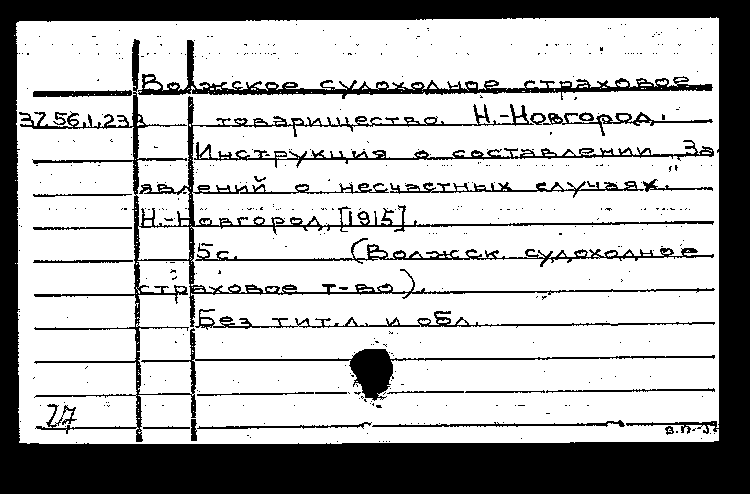 Волжское судоходное страховое
37.56.1.233 товарищество. Н.-Новгород.
Инструкция о составлении „За-
явлений о несчастных случаях."
Н.-Новгород, [1915].
5с. (Волжск. судоходное
страховое т-во).
Без тит.л. и обл.
27